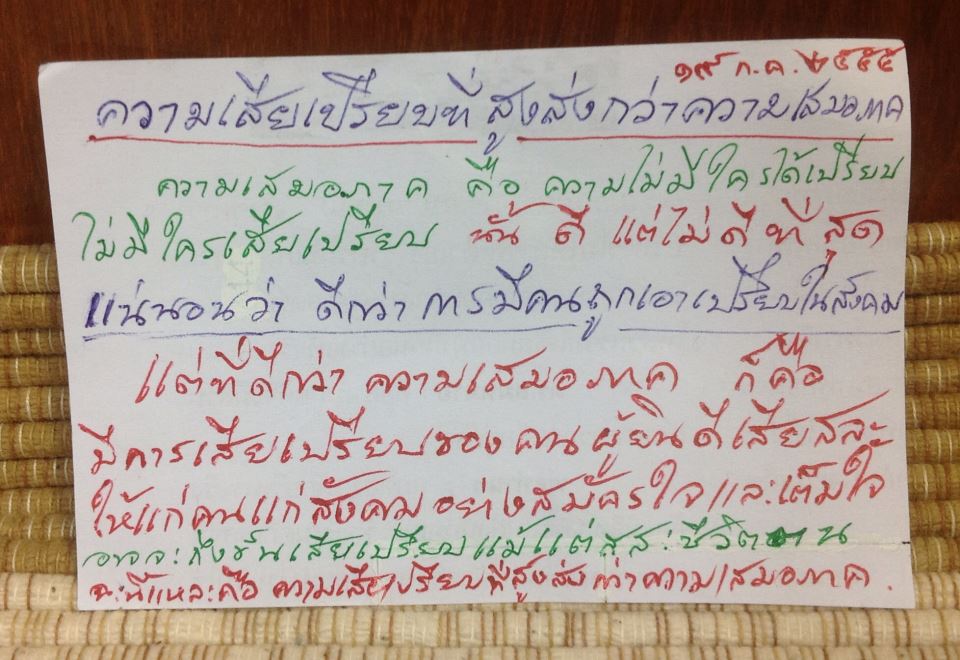 ๑๙ ก.ค. ๒๕๕๕
ความเสียเปรียบที่สูงส่งกว่าความเสมอภาค
ความเสมอภาค คือ ความไม่มีใครได้เปรียบ
ไม่มีใครเสียเปรียบ นั้น ดี แต่ไม่ดีที่สุด
แน่นอนว่า ดีกว่า การมีคนถูกเอาเปรียบในสังคม
แต่ที่ดีกว่า ความเสมอภาค ก็คือ
มีการเสียเปรียบของคนผู้ยินดีเสียสละ
ให้แก่คนแก่สังคมอย่างสมัครใจและเต็มใจ
อาจจะถึงขั้นเสียเปรียบแม้แต่สละชีวิตตน
นี่แหละคือ ความเสียเปรียบที่สูงส่งกว่าความเสมอภาค.